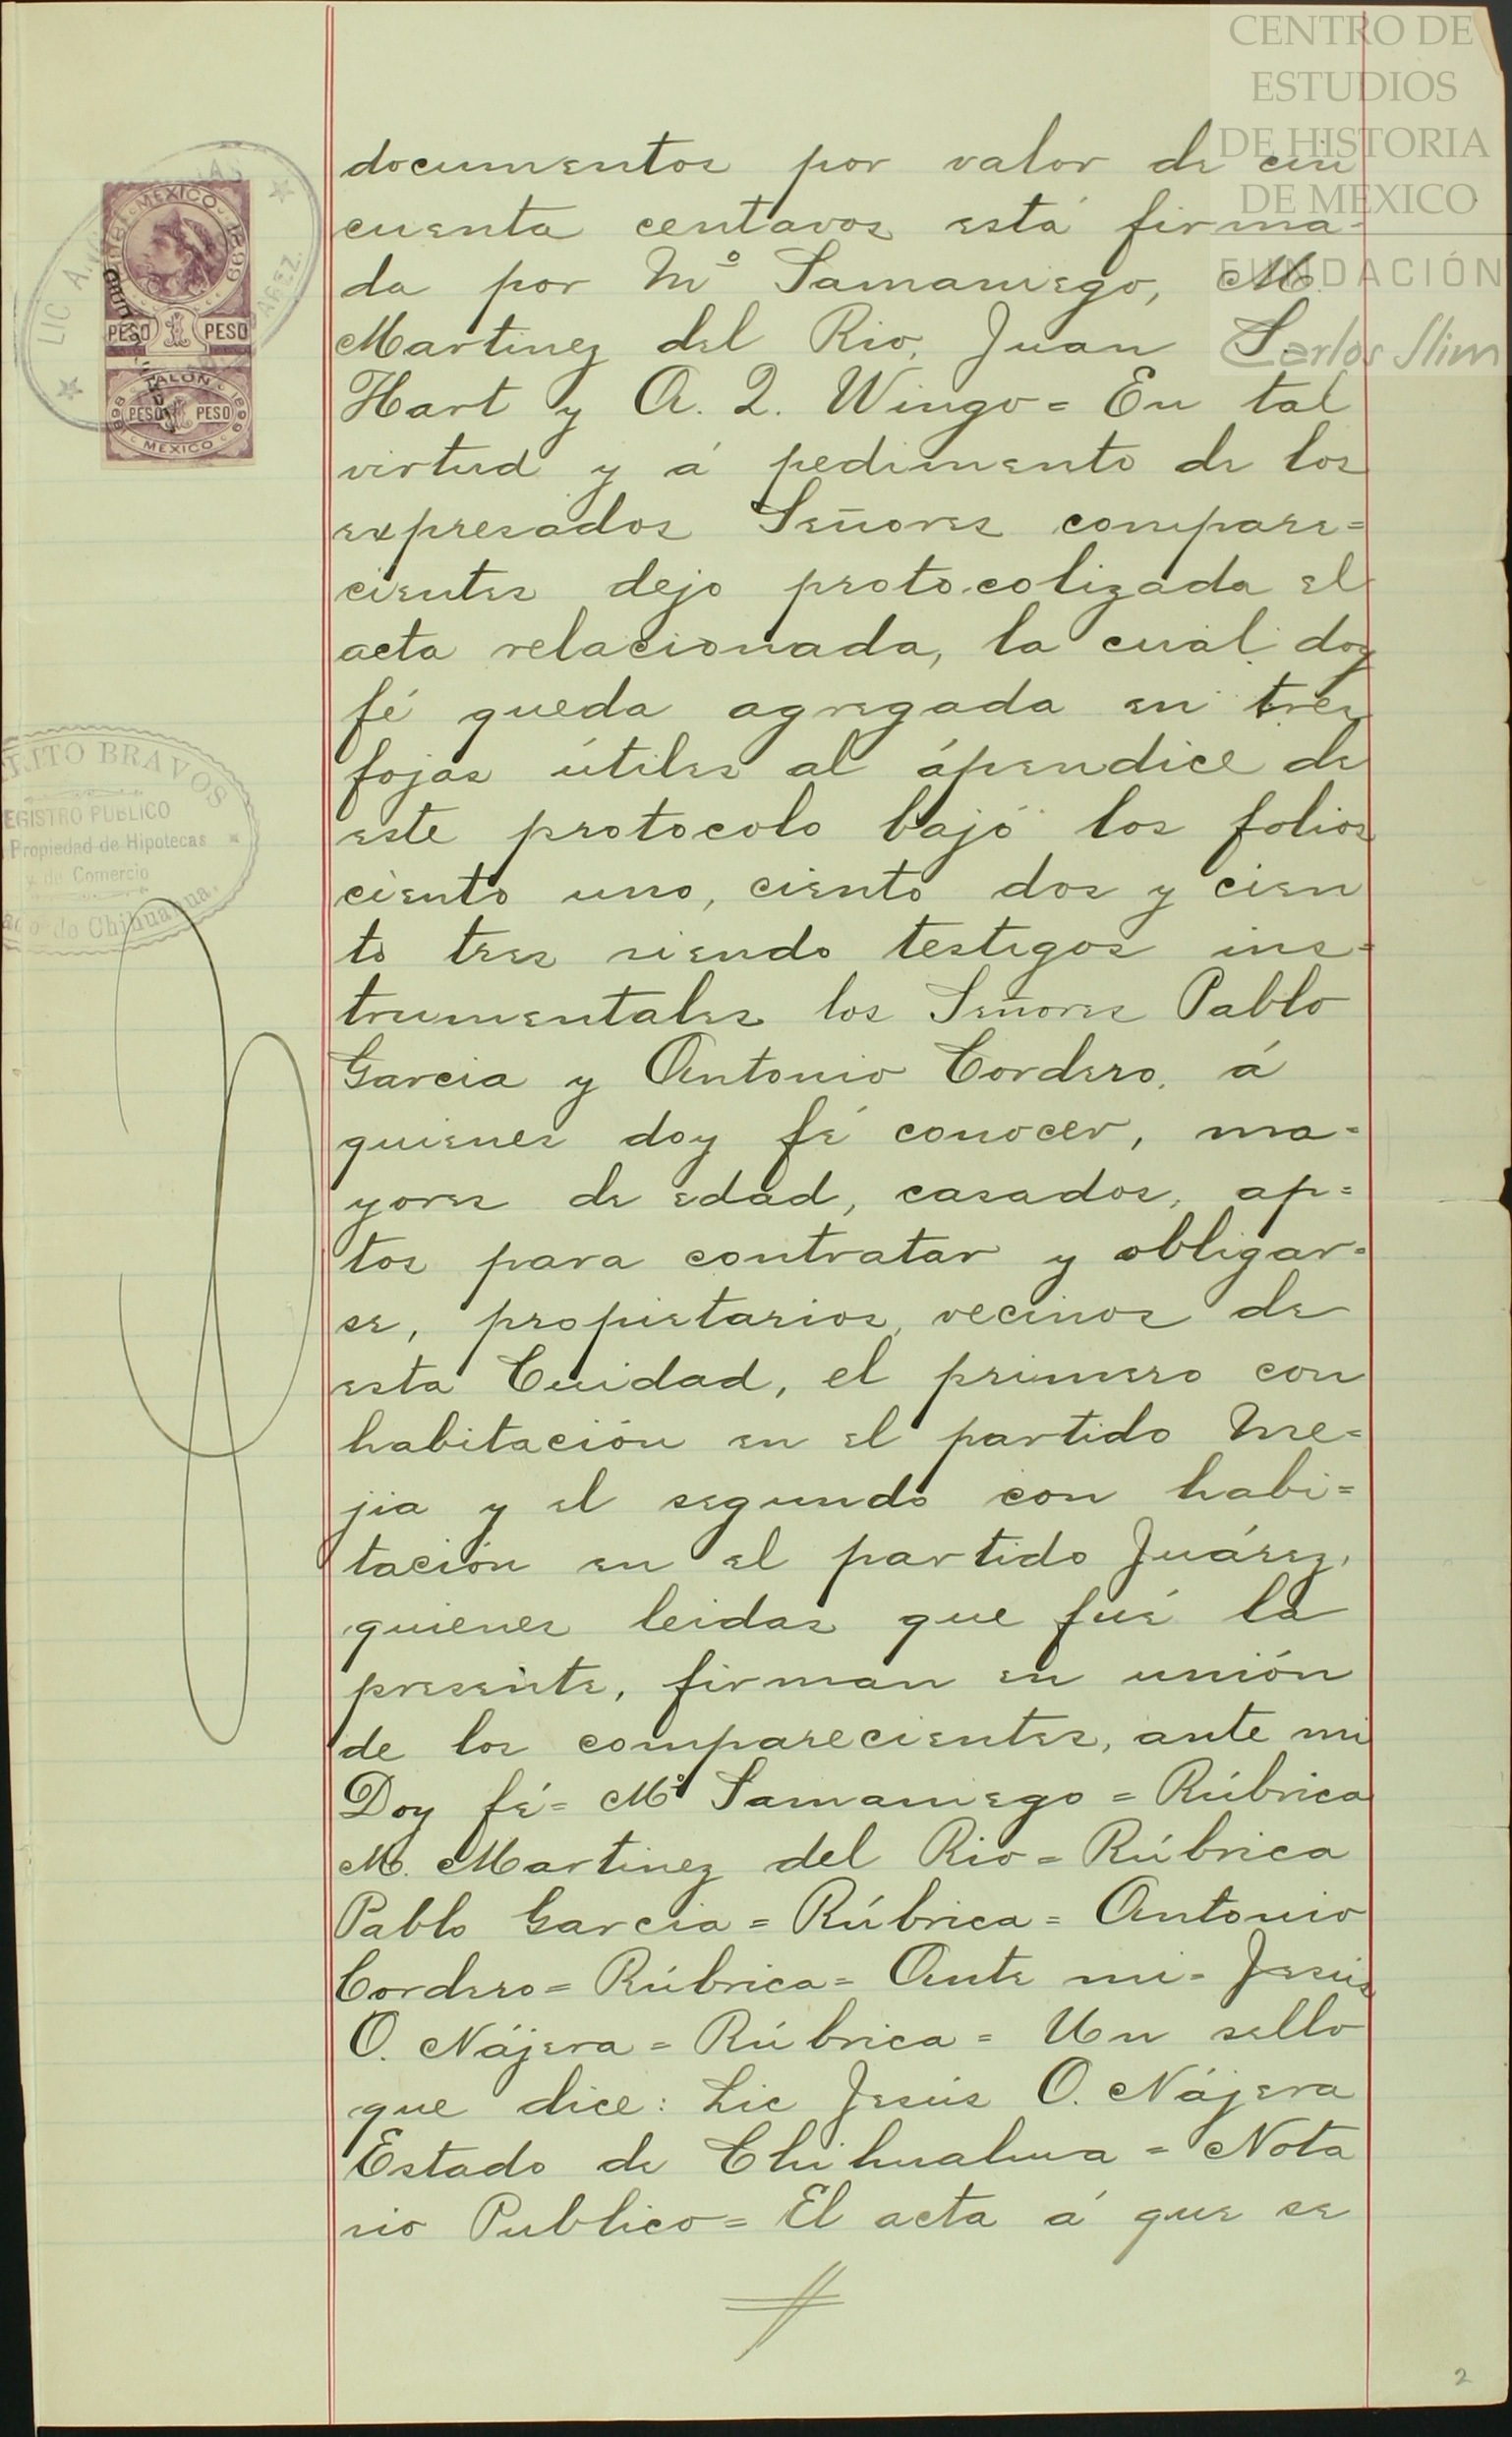 CENTRO DE
ESTUDIOS
DE HISTORIA
DE MEXICO
FUNDACIÓN
Carlos Slim
documentos por valor de cin
cuenta centavos está firma-
da por M° Samaniego, M.
Martinez del Rio, Juan S.
Hart y A. Q. Wingo = En tal
virtud y á pedimento de los
expresados Señores compare=
cientes dejo protocolizada el
acta relacionada, la cual doy
fé queda agregada en tres
fojas útiles al ápendice de
este protocolo bajó los folios
ciento uno, ciento dos y cien
to tres siendo testigos ins=
trumentales los Señores Pablo
Garcia y Antonio Cordero, á
quienes doy fé conocer, ma-
yores de edad, casados, ap=
tos para contratar y obligar-
se, propietarios, vecinos de
esta Cuidad, el primero con
habitación en el partido Me=
jia y el segundo con habi=
tación en el partido Juárez,
quienes leidas que fué la
presente, firman en unión
de los comparecientes, ante mi
Doy fé= M° Samaniego = Rúbrica
M. Martinez del Rio = Rúbrica
Pablo Garcia = Rúbrica = Antonio
Cordero = Rúbrica = Ante mi = Jesús
O. Nájera = Rúbrica = Un sello
que dice: Lic Jesús O. Nájera
Estado de Chihuahua = Nota
rio Publico = El acta á que se
MEXICO
1898 1899
PESO 1 PESO
TALON
1898 PESO PESO 1899
MEXICO
LIC A.
JUAREZ.
ITO BRAVOS
EGISTRO PUBLICO
Propiedad de Hipotecas
y de Comercio
de Chihuahua.
2